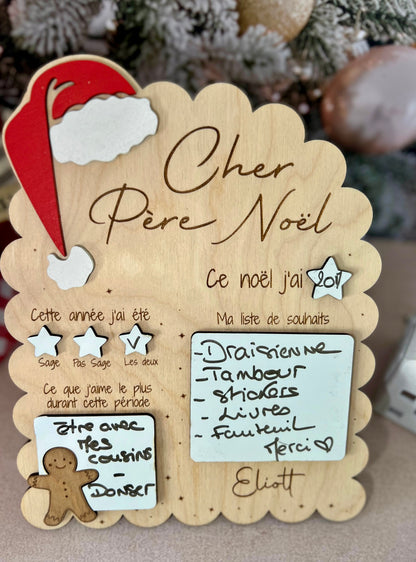 Cher
Père Noël
Ce noël j'ai
Cette année j'ai été
V
Sage Pas Sage Les deux
Ce que j'aime le plus
durant cette période
Etre avec
mes
cousins
-
Danser
Ma liste de souhaits
- Draisienne
- Tambour
- Stickers
- Livres
- Fauteuil
Merci ♡
Eliott